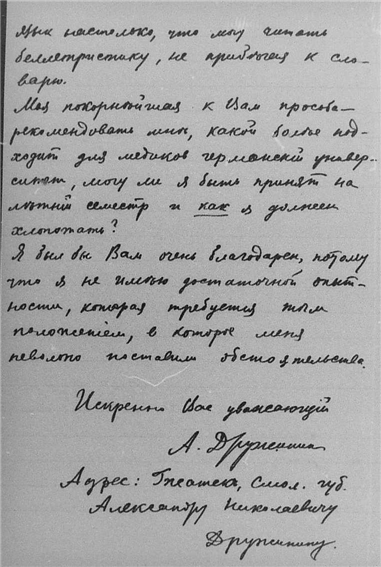 языкъ настолько, что могу читать
беллетристику, не прибѣгая к сло-
варю.
Моя покорнѣйшая к Вам просьба —
рекомендовать мнѣ, какой болѣе под-
ходит для медиков германскій универ-
ситет, могу ли я быть принят на
лѣтній семестр и как я должен
хлопотать?
Я был бы Вам очень благодарен, потому
что я не имѣю достаточной опыт-
ности, которая требуется тѣм
положеніем, в которое меня
невольно поставили обстоятельства.
Искренно Вас уважающій
А. Дружинин
Адрес: Гжатск, Смол. губ.
Александру Николаевичу
Дружинину.